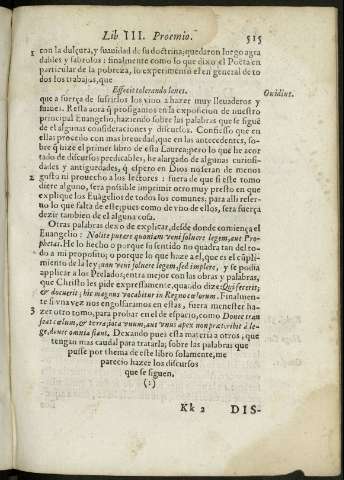 Lib III. Proemio. 515
1 con la dulçura, y suauidad de su doctrina, quedaron luego agra
dables y fabrolos: finalmente como lo que dixo el Poeta en
particular de la pobreza, lo experimentó el en general de to
dos los trabajos, que
Effecit tolerando leues. Ouidius.
que a fuerça de sufrirlos los vino a hazer muy lleuaderos y
suaues. Resta aora q̃ prosigamos en la exposicion de nuestro
principal Euangelio, haziendo sobre las palabras que se siguẽ
de el algunas consideraciones y discursos. Confiesso que en
ellas procedo con mas breuedad, que en las antecedentes, so-
bre q̃ hize el primer libro de esta Laurea; pero lo que he acor
tado de discursos predicables, he alargado de algunas curiosi-
dades y antiguedades, q̃ espero en Dios no seran de menos
2 gusto ni prouecho a los lectores: fuera de que si este tomo
diere alguno, sera possible imprimir otro muy presto en que
explique los Euãgelios de todos los comunes, para alli refer-
uar lo que falta de este; pues como de vno de ellos, sera fuerça
dezir tambien de el alguna cosa.
Otras palabras dexo de explicar, desde donde comiença el
Euangelio: Nolite putare quoniam veni soluere legem, aut Pro
phetas. He lo hecho o porque su sentido no quadra tan del to-
do a mi proposito; o porque lo que haze a el, que es el cũpli-
miento de la ley: non veni soluere legem, sed implere, y se podia
applicar a los Prelados, entra mejor con las obras y palabras,
que Christo les pide expressamente, quando dize: Qui fecerit,
& docuerit; hic magnus vocabitur in Regno cælorum. Finalmen-
te si vna vez nos engolfaramos en estas, fuera menester ha-
3 zer otro tomo, para probar en el de espacio, como Donec tran
seat cælum, & terra; iota vnum, aut vnus apex non præteribit à le-
ge, donec omnia fiant. Dexando pues esta materia a otros, que
tengan mas caudal para tratarla; sobre las palabras que
pusse por thema de este libro solamente, me
parecio hazer los discursos
que se siguen.
(:)
Kk 2 DIS-